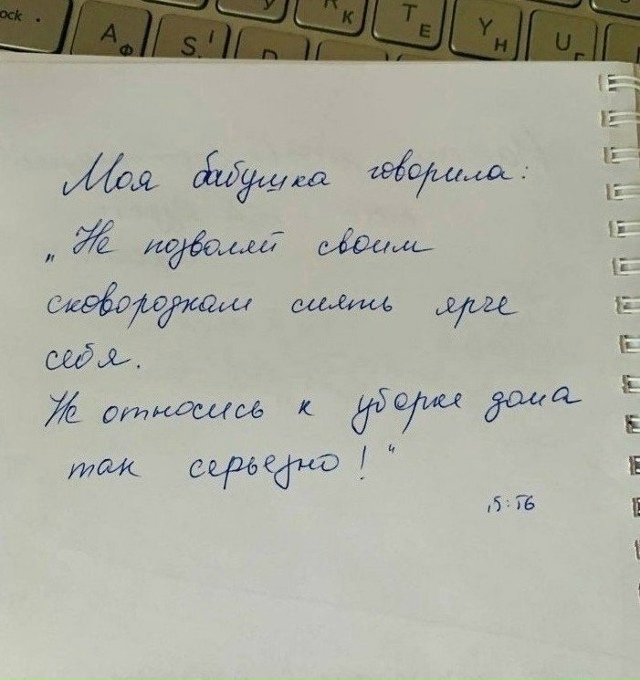 ock
А Ф
S I
D
R К
T Е
Y Н
U Г
Моя бабушка говорила:
„Не позволяй своим
сковородкам сиять ярче
себя.
Не относись к уборке дома
так серьезно!"